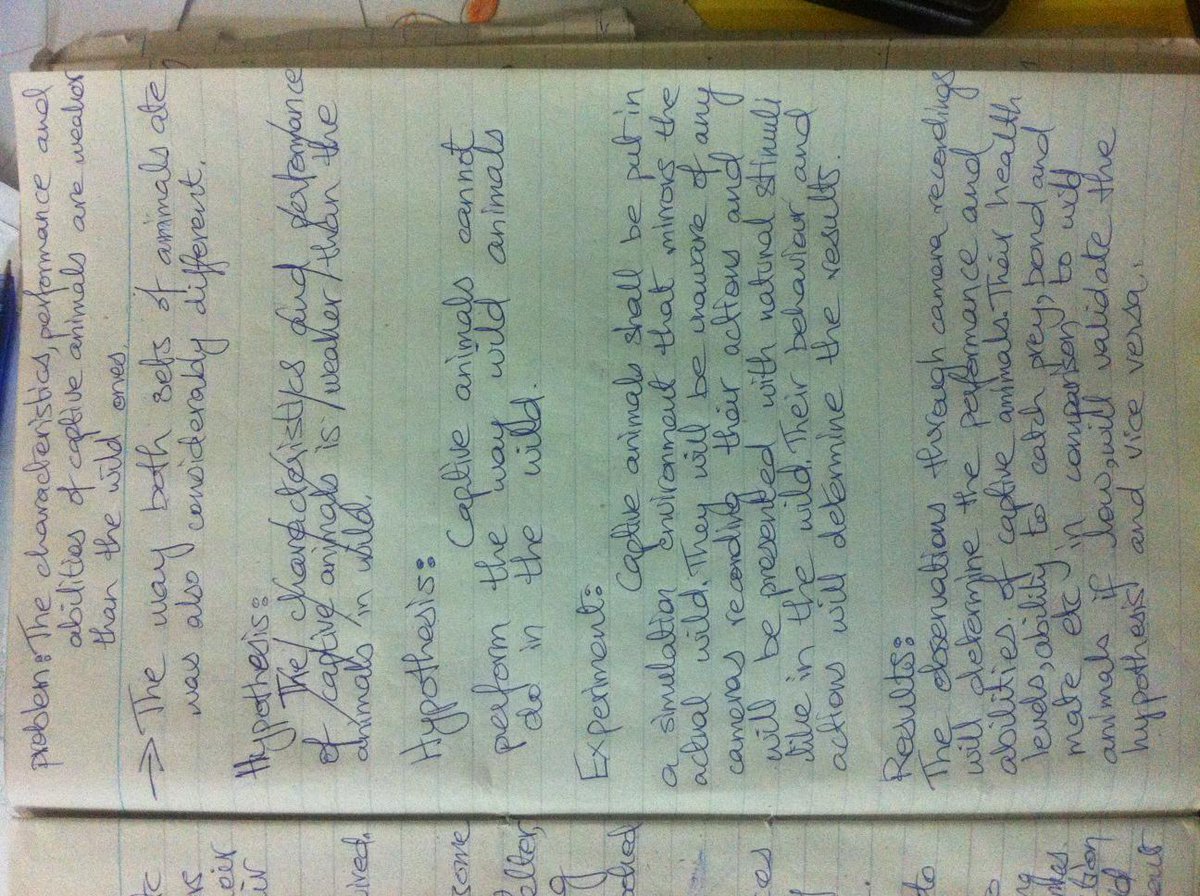 problem: The characteristics, performance and
abilities of captive animals are weaker
than the wild ones.
→ The way both sets of animals ate
was also considerably different.
Hypothesis:
The characteristics and performance
of captive animals is weaker than the
animals in wild.
Hypothesis:
Captive animals cannot
perform the way wild animals
do in the wild.
Experiment:
Captive animals shall be put in
a simulation environment that mirrors the
actual wild. They will be unaware of any
cameras recording their actions and
will be presented with natural stimuli
like in the wild. Their behaviour and
actions will determine the results.
Results:
The observations through camera recordings
will determine the performance and
abilities of captive animals. Their health
levels, ability to catch prey, bond and
mate etc in comparison to wild
animals if low, will validate the
hypothesis and vice versa.
etc
oir
ired.
some
elter,
oched
ies
to